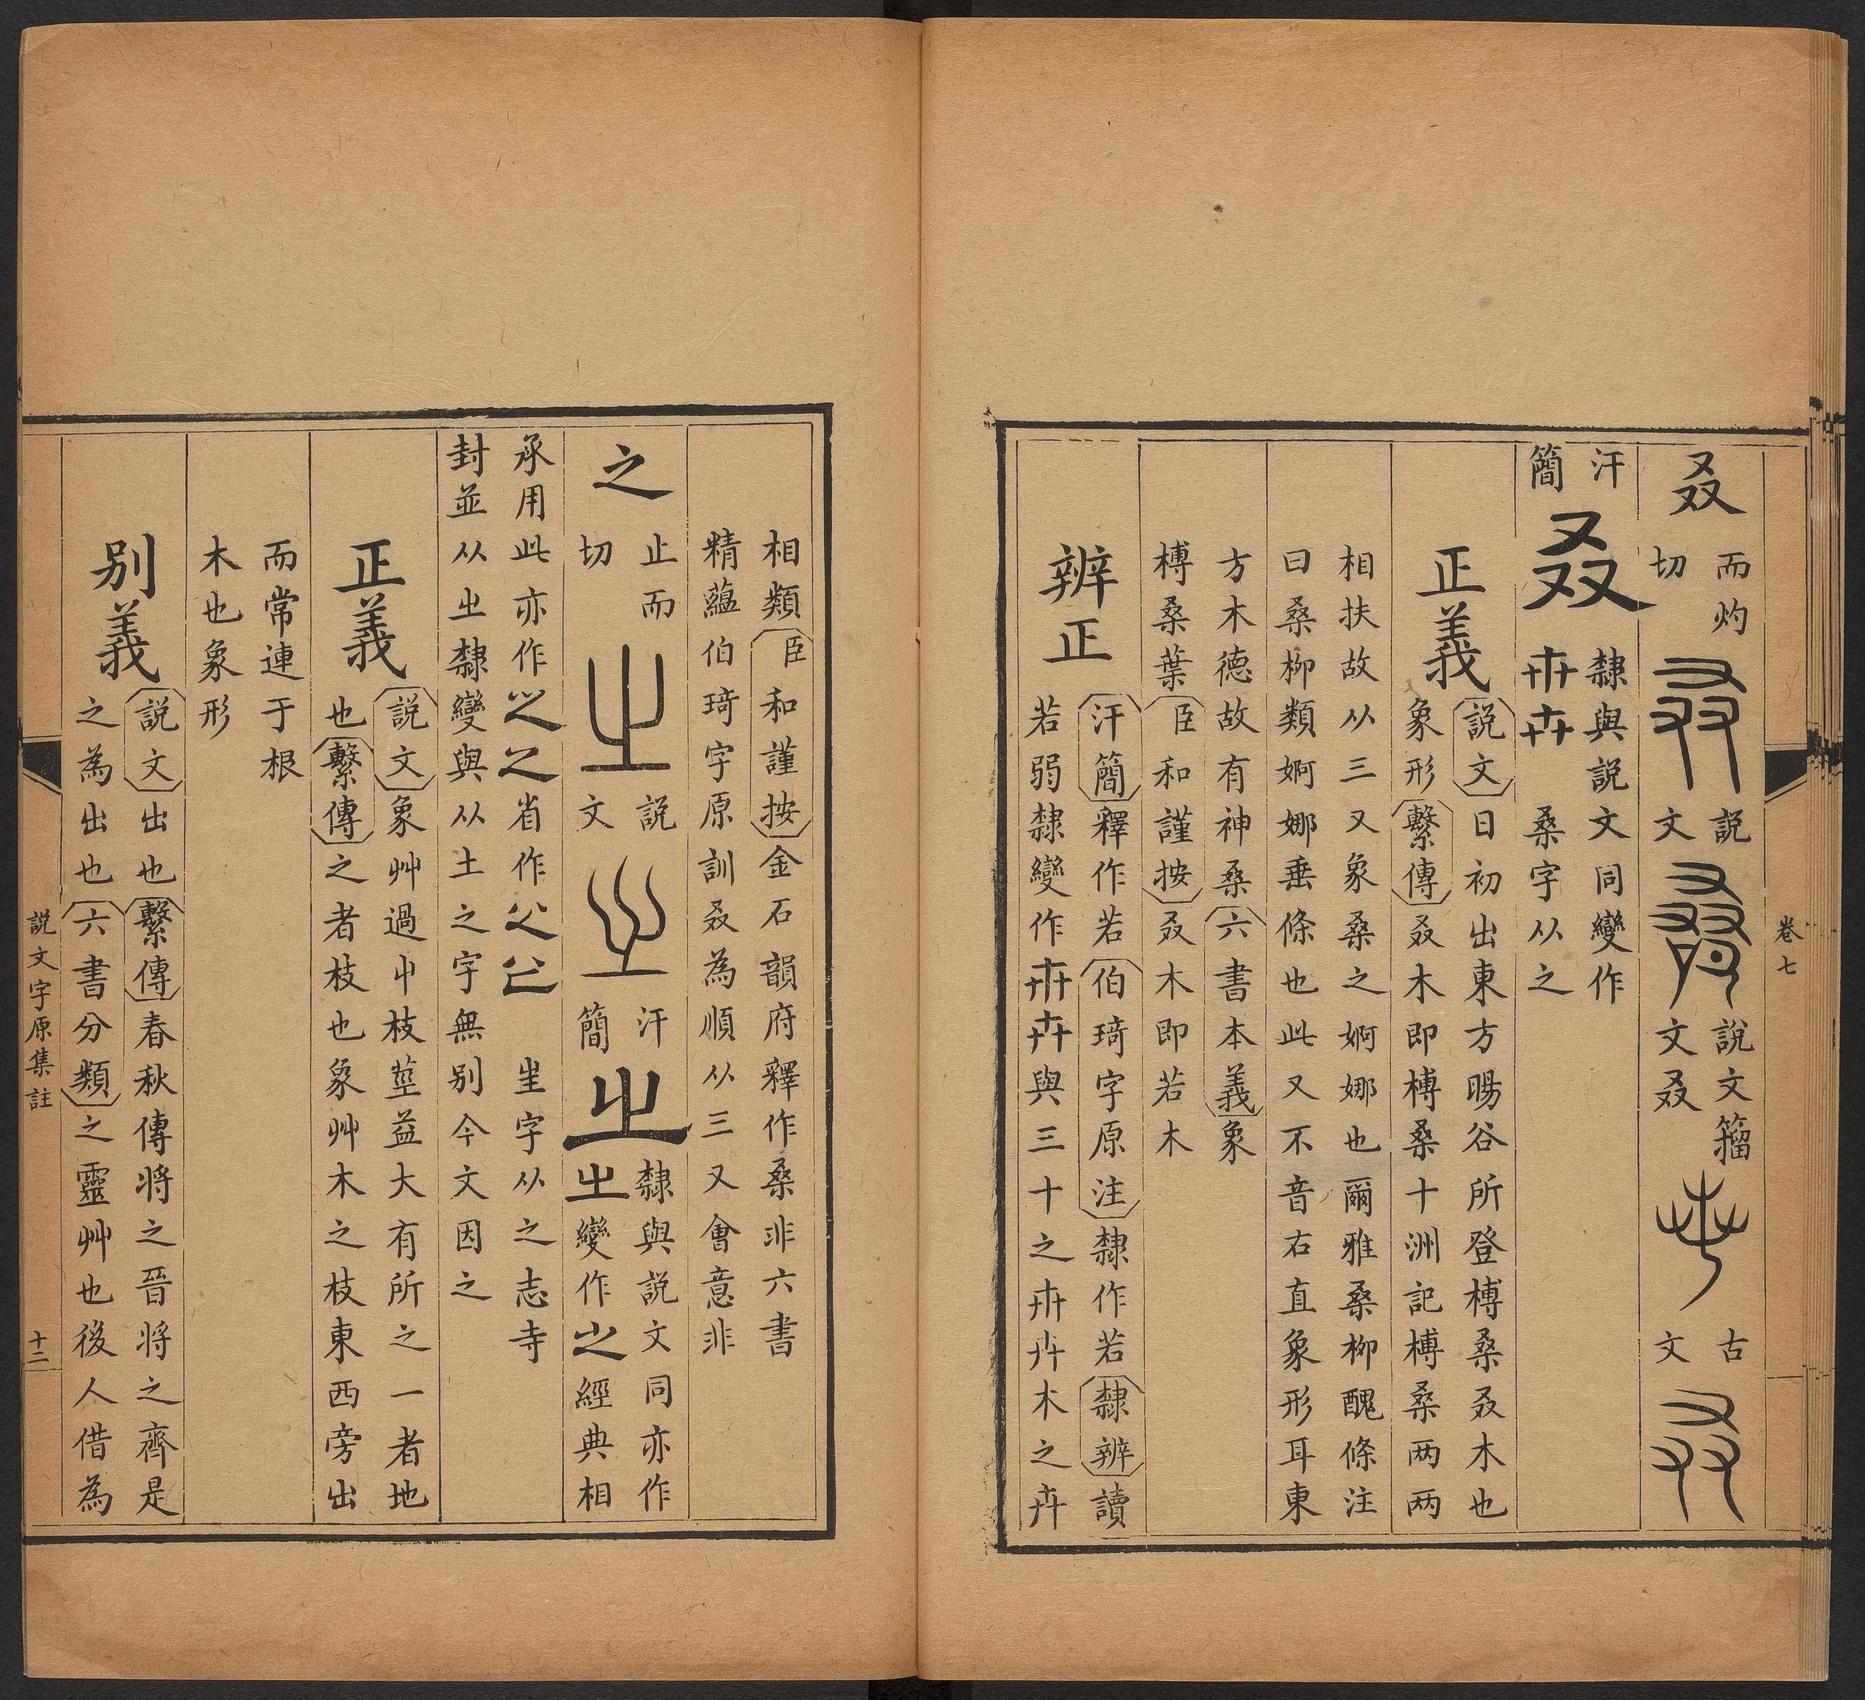 卷七
叒
而灼
切
説
文
說文籀
文叒
古
文
汗
簡
叒
隸與説文同變作
卉卉桑字从之
正義
説文日初出東方暘谷所登榑桑叒木也
象形繫傳叒木即榑桑十洲記榑桑两两
相扶故从三又象桑之婀娜也爾雅桑柳醜條注
曰桑柳類婀娜垂條也此又不音右直象形耳東
方木德故有神桑六書本義象
榑桑葉臣和謹按叒木即若木
辨正
汗簡釋作若伯琦字原注隸作若隸辨讀
若弱隸變作卉卉與三十之卅卉木之卉
相類臣和謹按金石韻府釋作桑非六書
精蘊伯琦字原訓叒為順从三又會意非
之
止而
切
説
文
汗
簡
㞢
隸與説文同亦作
㞢變作之經典相
承用此亦作之之省作㞢字从之志寺
封並从㞢隸變與从土之字無别今文因之
正義
説文象艸過屮枝莖益大有所之一者地
也繫傳之者枝也象艸木之枝東西旁出
而常連于根
木也象形
别義
説文出也繫傳春秋傳將之晉將之齊是
之為出也六書分類之靈艸也後人借為
説文字原集註
十二